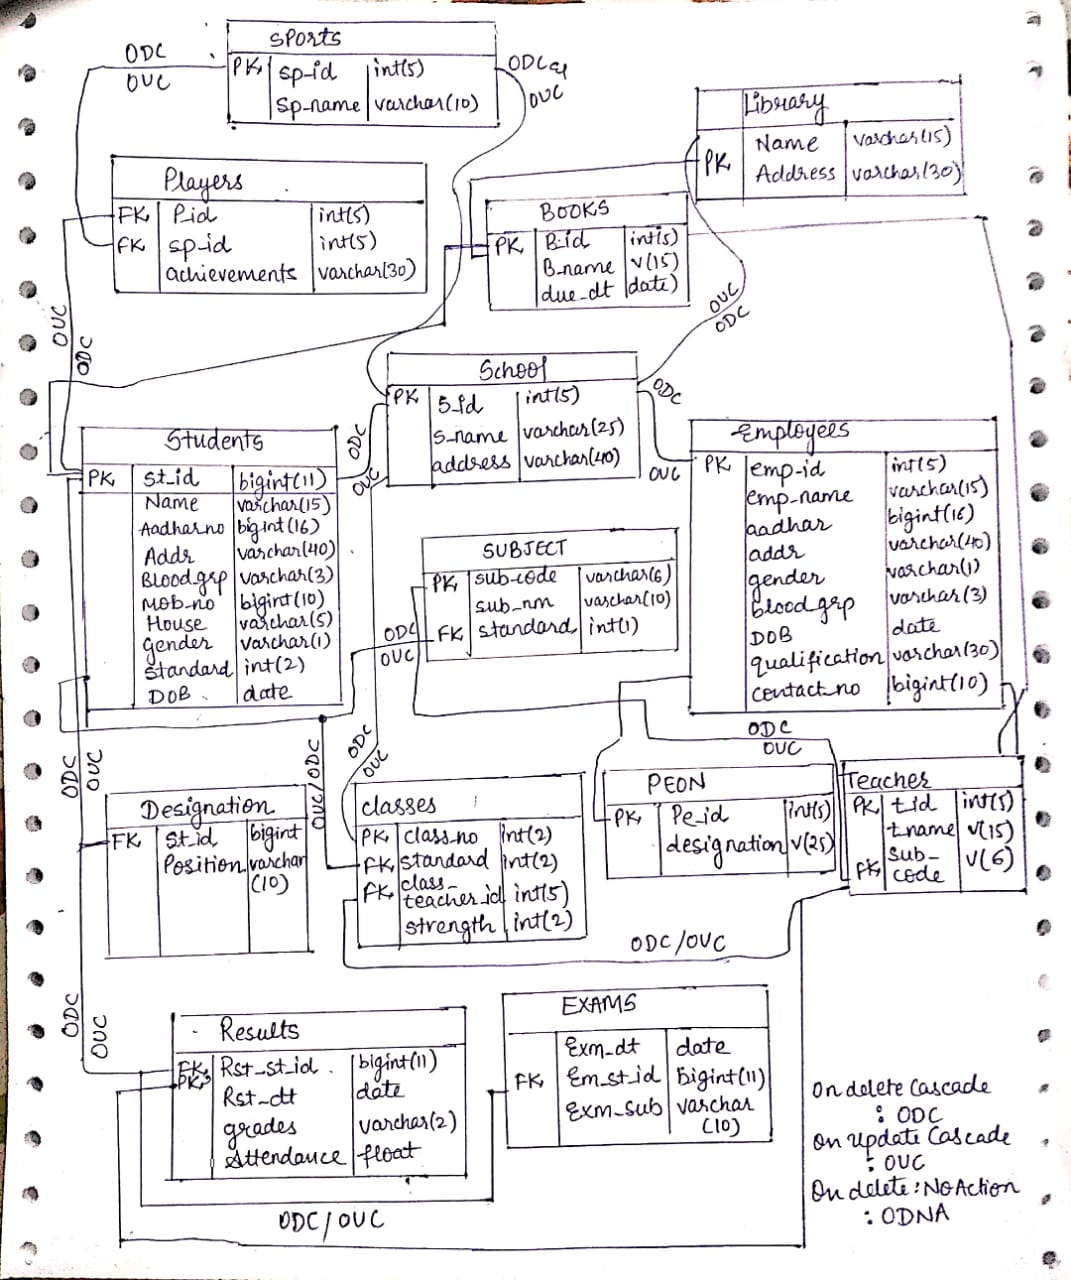 SPORTS
ODC
OUC
PK sp-id int(5)
Sp-name varchar(10)
ODC
OUC
Library
PK Name varchar(15)
Address varchar(30)
Players
FK P-id int(5)
FK sp-id int(5)
achievements varchar(30)
BOOKS
PK B-id int(5)
B-name v(15)
due-dt date)
OUC
ODC
OUC
ODC
School
PK S-id int(5)
S-name varchar(25)
address varchar(40)
ODC
OUC
ODC
OUC
Students
PK st-id bigint(11)
Name varchar(15)
Aadhar-no bigint(16)
Addr varchar(40)
Bloodgrp varchar(3)
Mob-no bigint(10)
House varchar(5)
Gender varchar(1)
Standard int(2)
DOB date
Employees
PK emp-id int(5)
emp-name varchar(15)
aadhar bigint(16)
addr varchar(40)
gender varchar(1)
bloodgrp varchar(3)
DOB date
qualification varchar(30)
contact-no bigint(10)
SUBJECT
PK sub-code varchar(6)
sub-nm varchar(10)
FK standard int(1)
ODC
OUC
ODC
OUC
ODC
OUC
OUC/ODC
ODC
OUC
Designation
FK St-id bigint
Position varchar
(10)
classes
PK class-no int(2)
FK standard int(2)
FK class-
teacher-id int(5)
strength int(2)
PEON
PK Pe-id int(5)
designation v(25)
Teacher
PK t-id int(5)
t-name v(15)
FK Sub-
code v(6)
ODC/OUC
ODC
OUC
Results
FK Rst-st-id bigint(11)
PK
Rst-dt date
grades varchar(2)
Attendance float
EXAMS
Exm-dt date
FK Em-st-id bigint(11)
Exm-sub varchar
(10)
ODC/OUC
On delete Cascade
: ODC
On update Cascade
: OUC
On delete: No Action
: ODNA